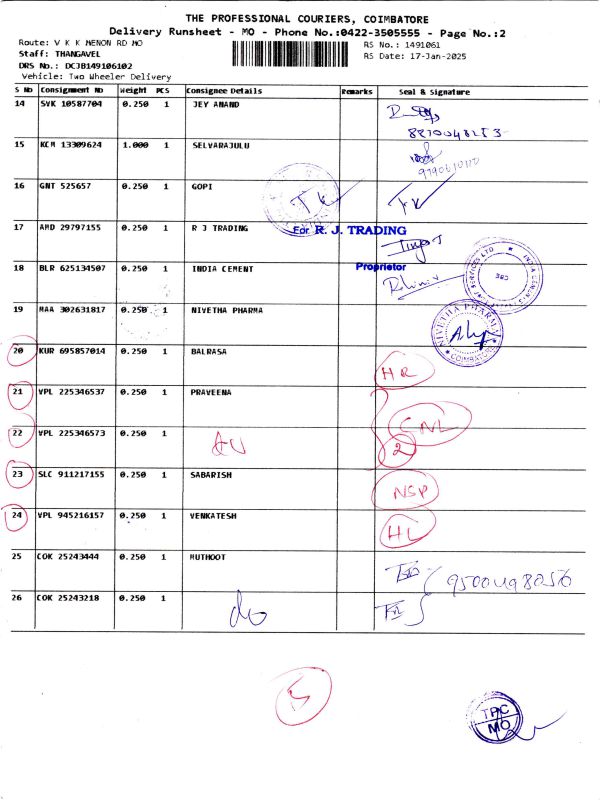 THE PROFESSIONAL COURIERS, COIMBATORE
Delivery Runsheet - MO - Phone No.:0422-3505555 - Page No.:2
Route: V K K MENON RD MO
RS No.: 1491061
Staff: THANGAVEL
RS Date: 17-Jan-2025
DRS No.: DCJB149106102
Vehicle: Two Wheeler Delivery
S No Consignment No Weight PCS Consignee Details Remarks Seal & Signature
14 SVK 10587704 0.250 1 JEY ANAND
15 KCM 13309624 1.000 1 SELVARAJULU
16 GNT 525657 0.250 1 GOPI
17 AMD 29797155 0.250 1 R J TRADING
For R. J. TRADING
Proprietor
18 BLR 625134507 0.250 1 INDIA CEMENT
19 MAA 302631817 0.250 1 NIVETHA PHARMA
NIVETHA PHARMA
COIMBATORE
20 KUR 695857014 0.250 1 BALRASA
HR
21 VPL 225346537 0.250 1 PRAVEENA
CNL
22 VPL 225346573 0.250 1
2
23 SLC 911217155 0.250 1 SABARISH
NSP
24 VPL 945216157 0.250 1 VENKATESH
HL
25 COK 25243444 0.250 1 MUTHOOT
26 COK 25243218 0.250 1 do
5
TPC
MO